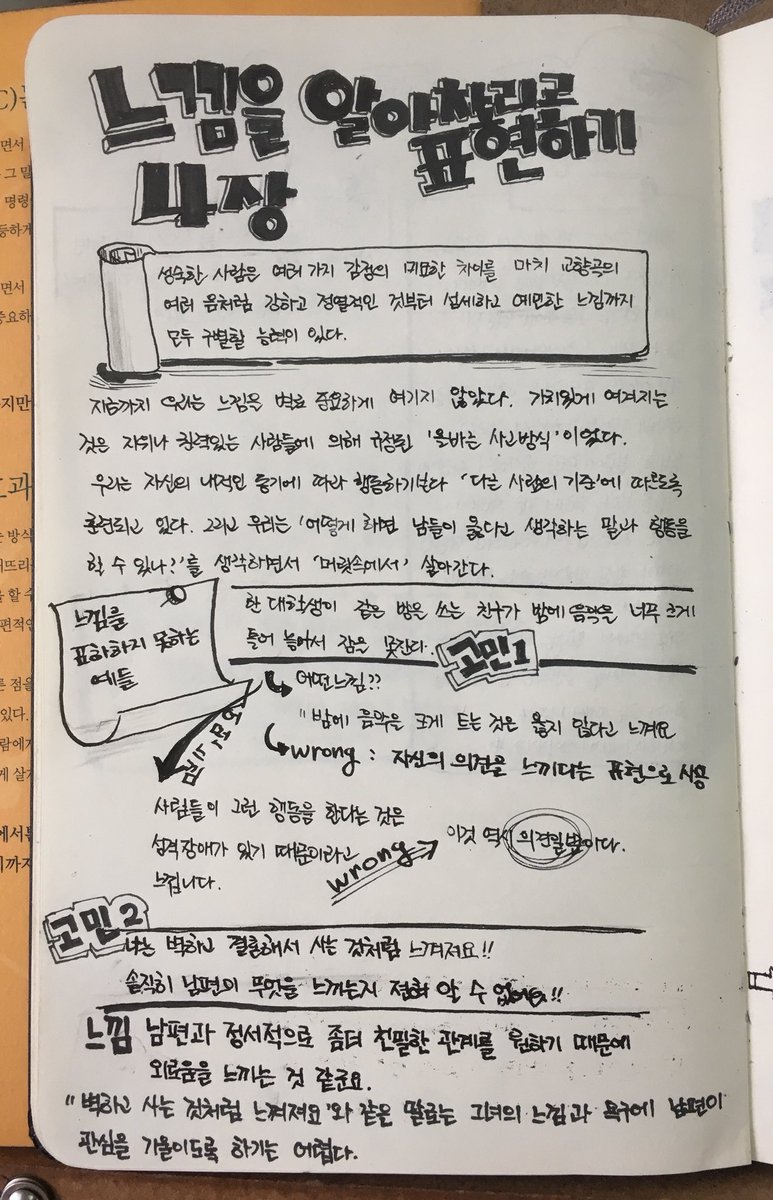 느낌을 알아차리고
표현하기
4장
성숙한 사람은 여러 가지 감정의 미묘한 차이를 마치 교향곡의
여러 음처럼 강하고 정열적인 것부터 섬세하고 예민한 느낌까지
모두 구별할 능력이 있다.
지금까지 우리는 느낌을 별로 중요하게 여기지 않았다. 가치있게 여겨지는
것은 지위나 권력있는 사람들에 의해 규정된 '올바른 사고방식'이었다.
우리는 자신의 내적인 동기에 따라 행동하기보다 '다른 사람의 기준'에 따르도록
훈련되고 있다. 그리고 우리는 '어떻게 하면 남들이 옳다고 생각하는 말과 행동을
할 수 있나?'를 생각하면서 '머릿속에서' 살아간다.
느낌을
표하하지 못하는
예들
한 대학생이 같은 방은 쓰는 친구가 밤에 음악을 너무 크게
틀어 놓어서 잠은 못잔다.
고민1
어떤느낌??
"밤에 음악을 크게 트는 것은 옳지 않다고 느껴요
wrong : 자신의 의견을 느끼다는 표현으로 사용
느낌
사람들이 그런 행동을 한다는 것은
성격장애가 있기 때문이라고
느낍니다.
wrong
이것 역시 의견일뿐이다.
고민2
나는 벽하고 결혼해서 사는 것처럼 느껴져요!!
솔직히 남편의 무엇을 느끼는지 전혀 알 수 없어요!!
느낌 남편과 정서적으로 좀더 친밀한 관계를 원하기 때문에
외로움을 느끼는 것 같군요.
"벽하고 사는 것처럼 느껴져요'와 같은 말로는 그녀의 느낌과 욕구에 남편이
관심을 기울이도록 하기는 어렵다.